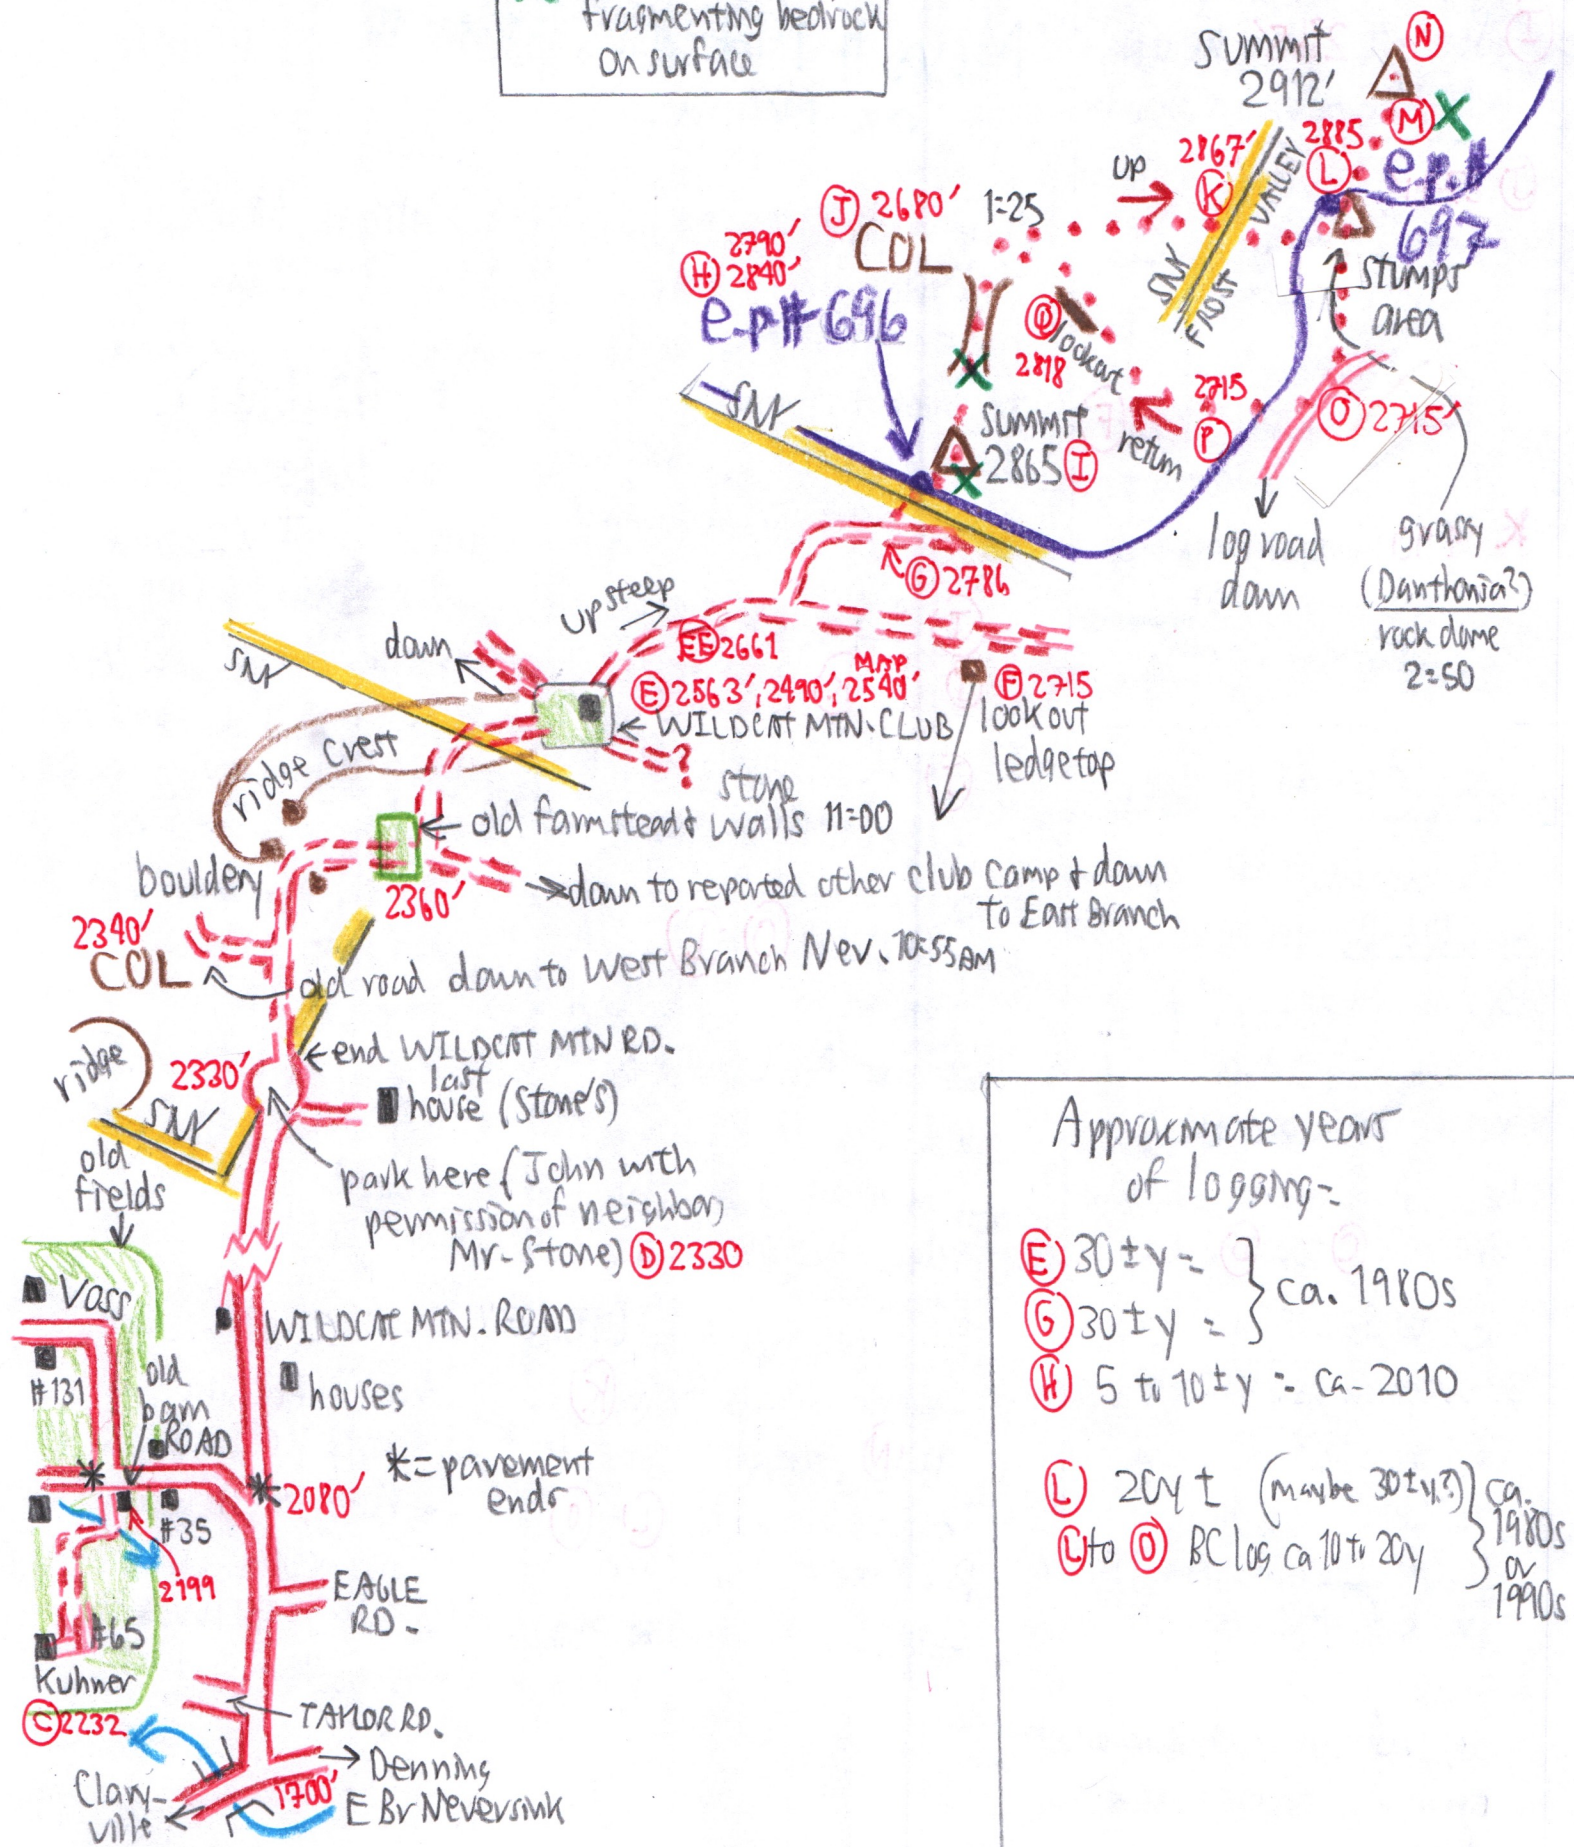 fragmenting bedrock
on surface
Summit
2912'
N
M
X
2885
L
e.p.#
697
2867'
K
up
SNK
FROST
VALLEY
Stumps
area
J 2680'
COL
1:25
2790'
H 2840'
e.p# 696
lookout
2818
2715
P
return
O 2715'
SNK
Summit
2865 I
log road
down
grassy
(Danthonia?)
rock dome
2:50
G 2786
up steep
down
EE 2661
MAP
E 2563', 2490', 2540'
WILDCAT MTN. CLUB
F 2715
lookout
ledgetop
SNK
ridge crest
?
stone
old farmstead & walls 11:00
bouldery
2360'
down to reported other club camp & down
to East Branch
2340'
COL
old road down to West Branch Nev. 10:55AM
ridge
2330'
end WILDCAT MTN RD.
last
house (Stone's)
SNK
old
fields
park here (John with
permission of neighbor,
Mr. Stone) D 2330
Voss
WILDCAT MTN. ROAD
#131
old
barn
ROAD
houses
*=pavement
ends
2080'
#35
2199
EAGLE
RD.
#65
Kuhner
C 2232
TAYLOR RD.
Denning
1700'
E Br Neversink
Clary-
ville
Approximate years
of logging=
E 30±y =
G 30±y =
ca. 1980s
H 5 to 10±y = ca. 2010
L 20y± (maybe 30±y?)
L to O BC log ca 10 to 20y
ca.
1980s
or
1990s